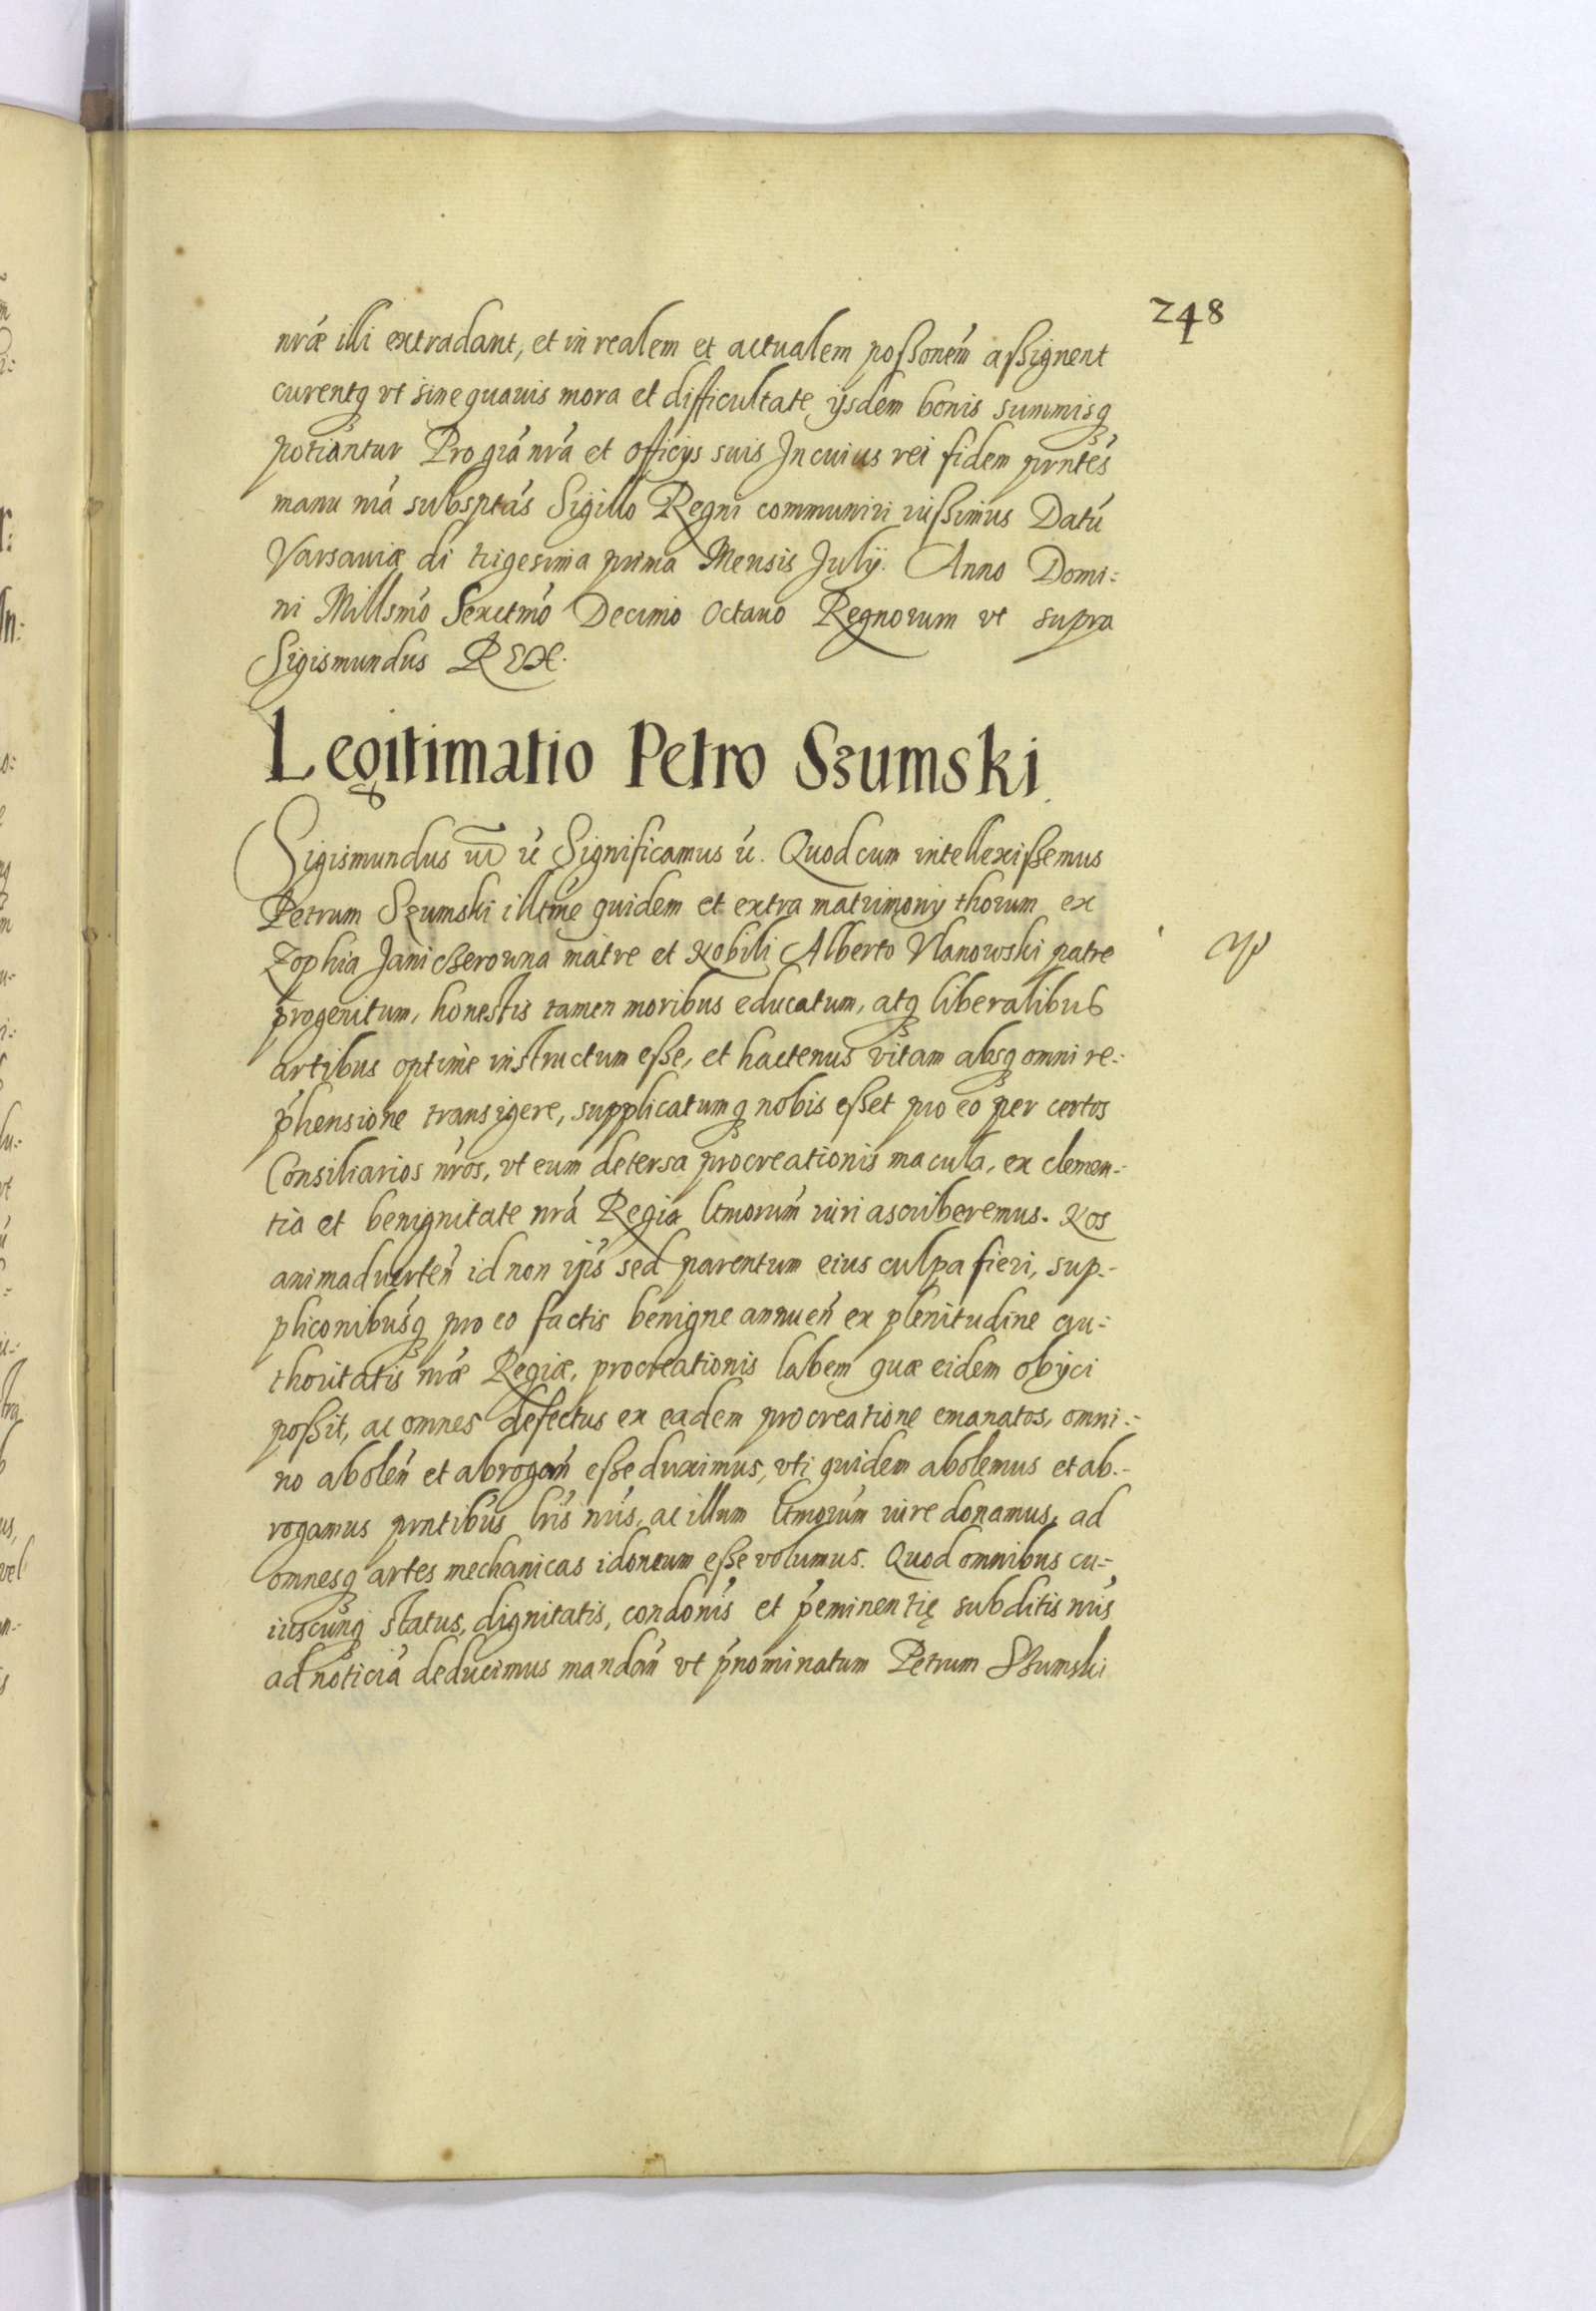 248
nrǽ illi extradant, et in realem et actualem poßoném aßignent
curentq̃ vt sine quauis mora et difficultate, ijsdem bonis summisq̃
potiantur Pro grá nrá et officijs suis In cuius rei fidem prntés
manu nrá subsptás Sigillo Regni communiri iußimus Datú
Varsauiæ di trigesima prima Mensis Julÿ. Anno Domi:
ni Millsmó Sexctmó Decimo Octauo Regnorum vt supra
Sigismundus REX.
Legitimatio Petro Szumski
Sigismundus ú Significamus ú. Quod cum intellexißemus
Petrum Szumski illtmé quidem et extra matrimonij thorum ex
Zophia Janiczerowna matre et Nobili Alberto Vlanowski patre
progenitum, honestis tamen moribus educatum, atq̃ liberalibus
artibus optimè instructum eße, et hactenus vitam absq̃ omni re:
p̃hensione transigere, supplicatumq̃ nobis eßet pro eo per certos
Consiliarios nŕos, vt eum detersa procreationis macula, ex clemen:
tia et benignitate nrá Regia ltmorum̃ iuri ascriberemus. Nos
animaduerteń id non ip̃s sed parentum eius culpa fieri, sup:
pliconibus̃q̃ pro eo factis benigne annueń ex plenitudine au:
thoritatis nrǽ Regiæ, procreationis labem quæ eidem obijci
poßit, ac omnes defectus ex eadem procreatione emanatos, omni:
no aboleń et abrogań eße duximus, vti quidem abolemus et ab:
rogamus prntibús lris̃ nris̃, ac illum ltmorúm iure donamus, ad
omnesq̃ artes mechanicas idoneum eße volumus. Quod omnibus cu:
iuscunq̃ status, dignitatis, condonis̃ et p̃eminentię subditis nris̃
ad noticiá deducimus mandań vt p̃nominatum Petrum Szumski